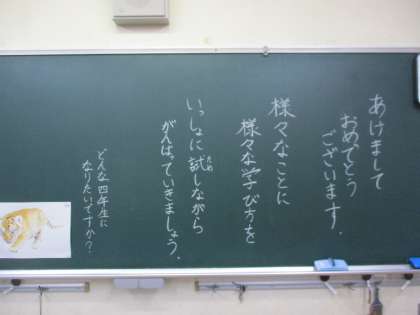 あけまして
おめでとう
ございます。
様々なことに
様々な学び方を
いっしょに試しながら
ため
がんばっていきましょう。
どんな四年生に
なりたいですか？